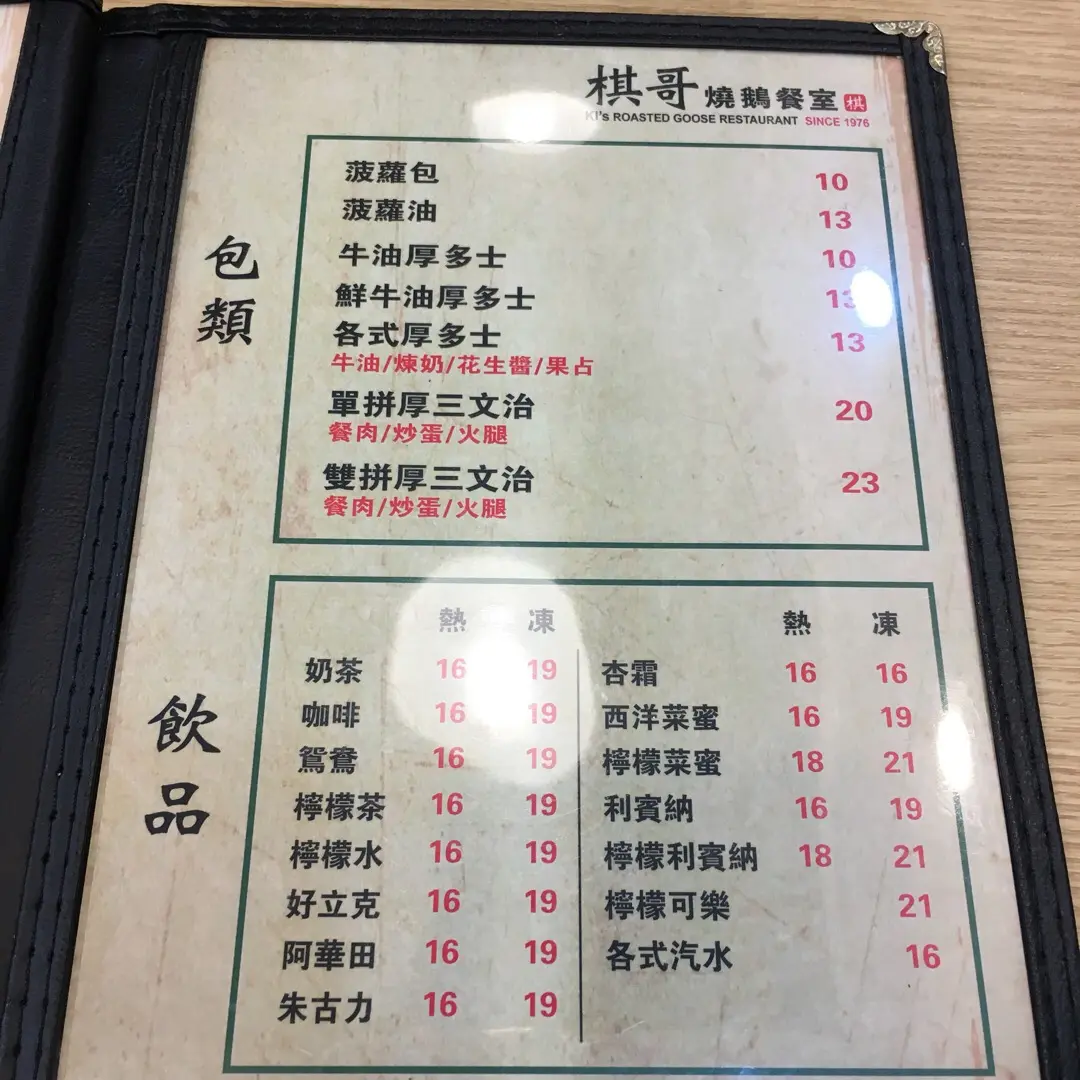 棋哥 燒鵝餐室 棋
KI's ROASTED GOOSE RESTAURANT SINCE 1976
包類
菠蘿包 10
菠蘿油 13
牛油厚多士 10
鮮牛油厚多士
各式厚多士 13
牛油/煉奶/花生醬/果占
單拼厚三文治 20
餐肉/炒蛋/火腿
雙拼厚三文治 23
餐肉/炒蛋/火腿
飲品
熱 凍
奶茶 16 19
咖啡 16 19
鴛鴦 16 19
檸檬茶 16 19
檸檬水 16 19
好立克 16 19
阿華田 16 19
朱古力 16 19
熱 凍
杏霜 16 16
西洋菜蜜 16 19
檸檬菜蜜 18 21
利賓納 16 19
檸檬利賓納 18 21
檸檬可樂 21
各式汽水 16